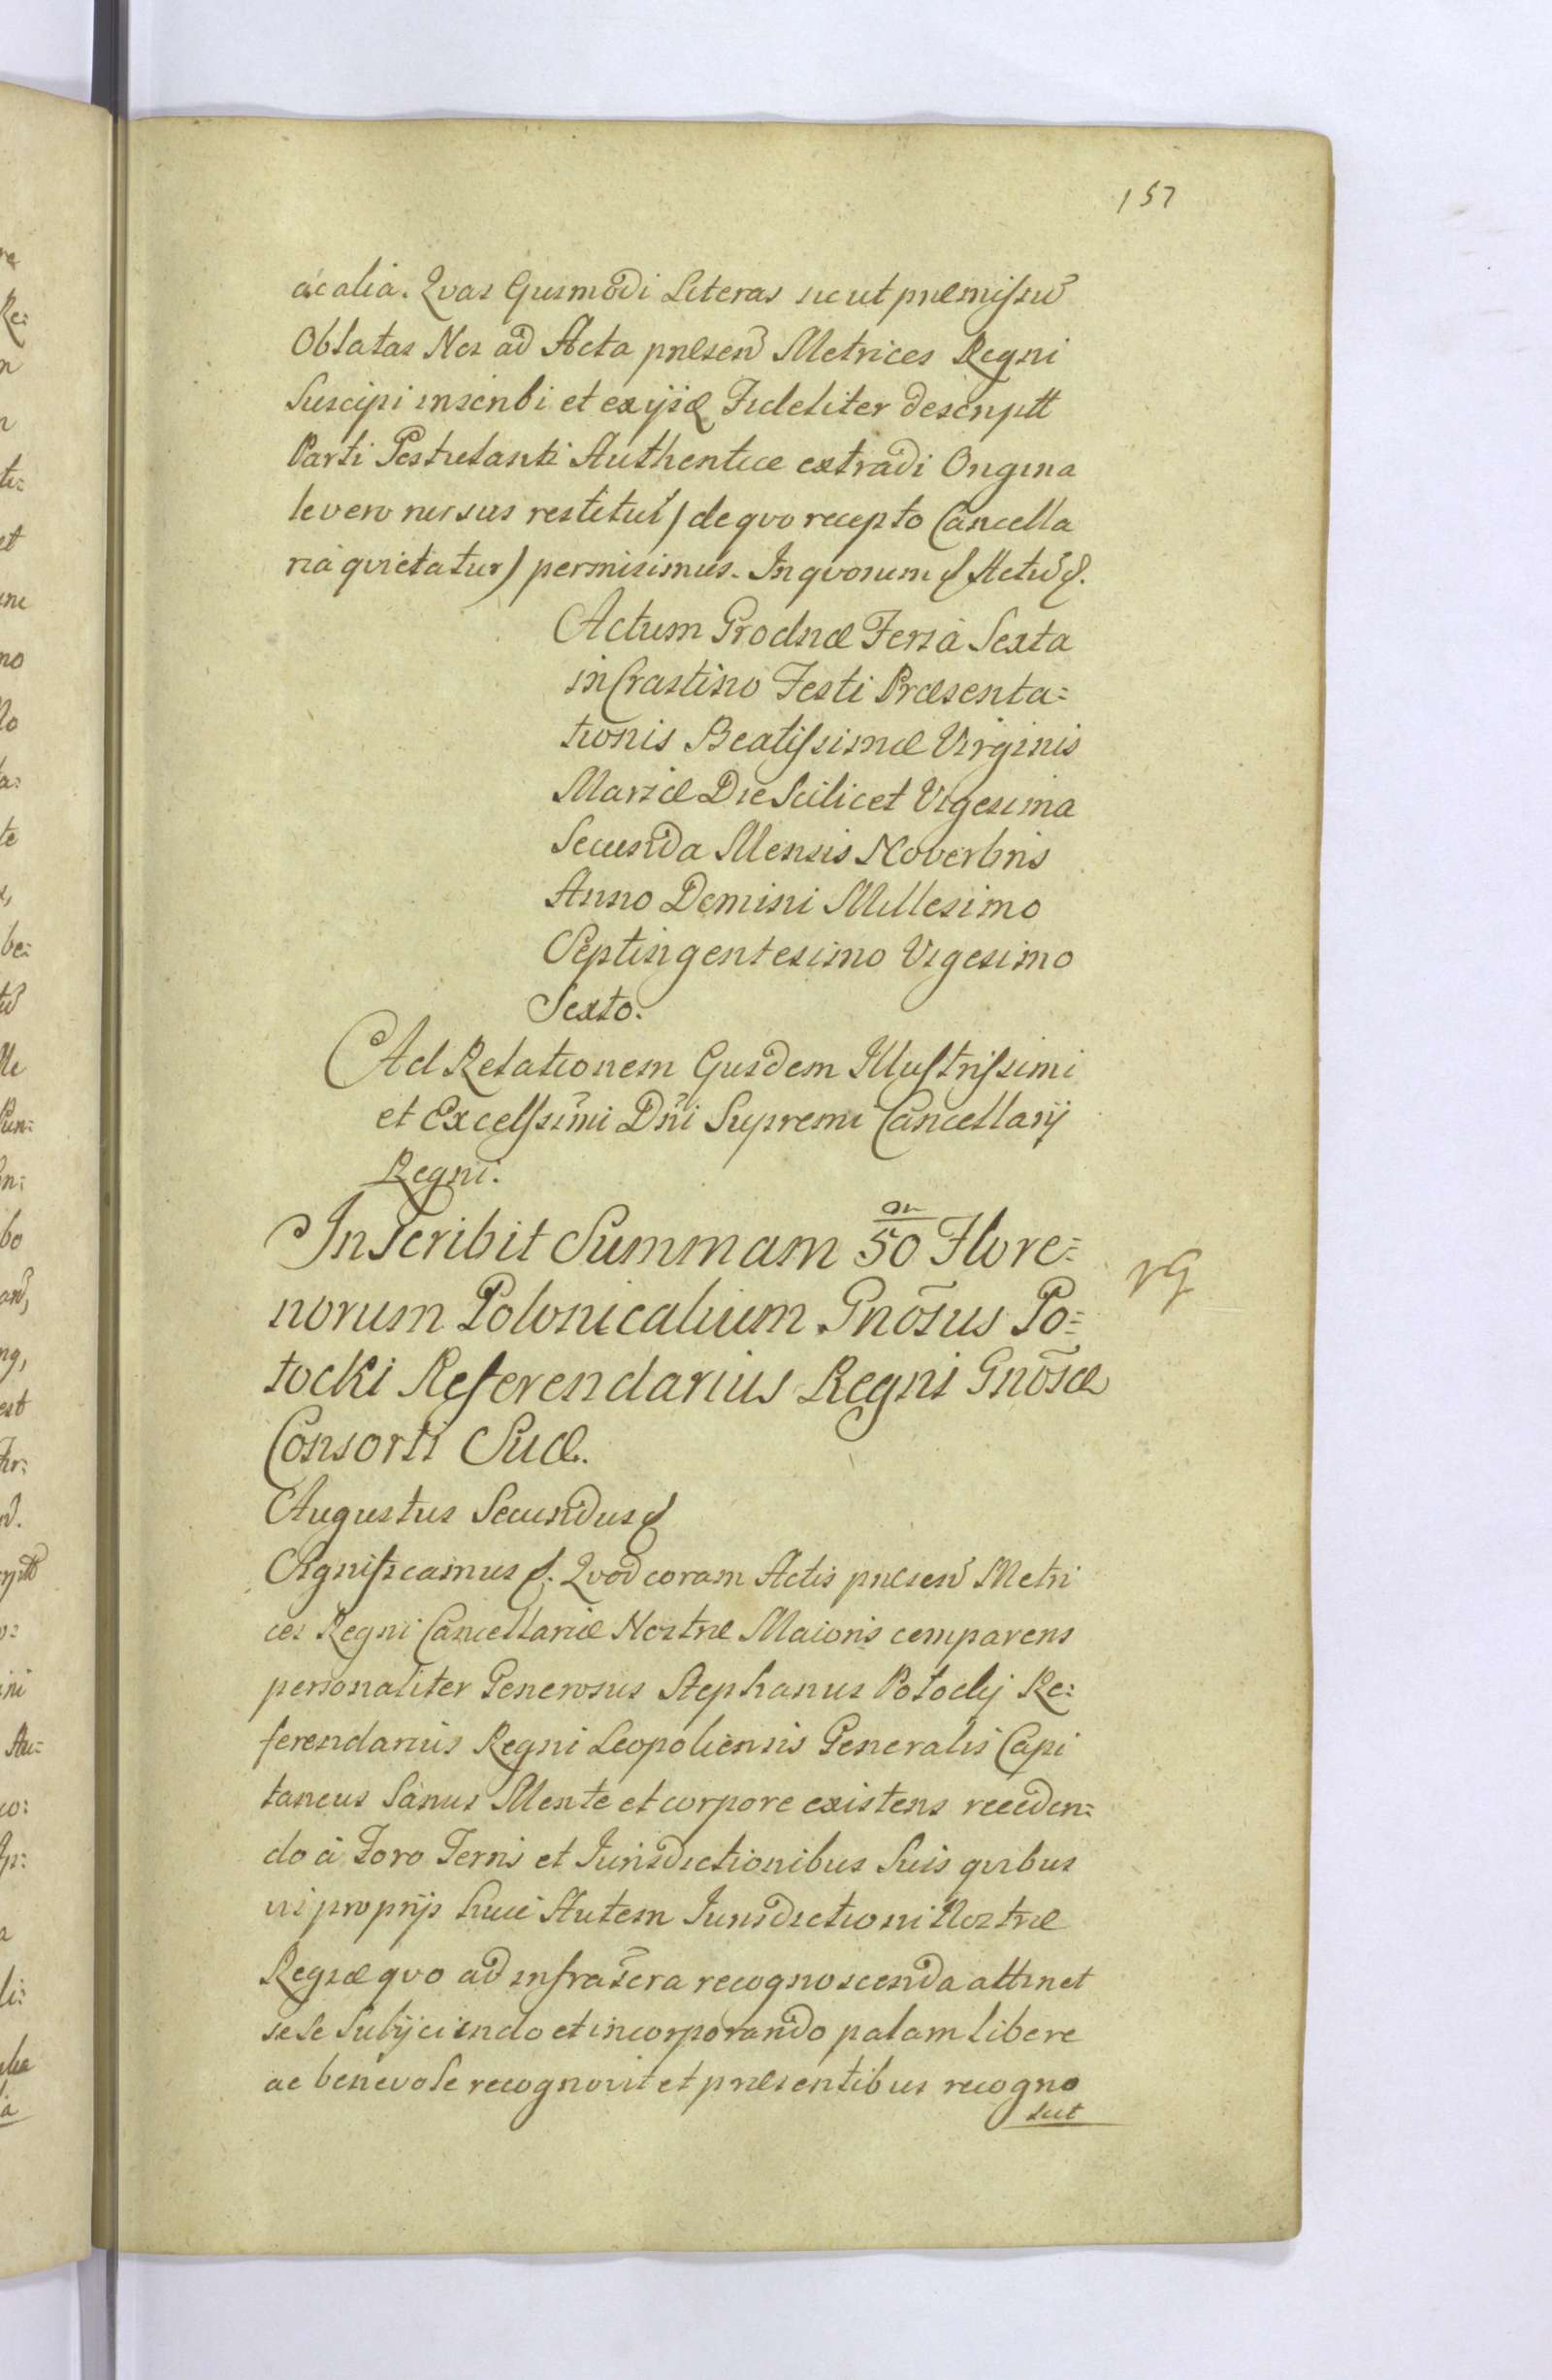 157
ac alia. Qvas Ejusmodi Literas sicut præmissu
Oblatas Nos ad Acta præsen Metrices Regni
Suscipi inscribi et ex ijsd Fideliter descriptt
Parti Postulanti Authentice extradi Origina
le vero rursus restitui / de qvo recepto Cancella
ria qvietatur / permisimus. In qvorum & Actu &.
Actum Grodnæ Feria Sexta
in Crastino Festi Præsenta=
tionis Beatissimæ Virginis
Mariæ Die Scilicet Vigesima
Secunda Mensis Novembris
Anno Domini Millesimo
Septingentesimo Vigesimo
Sexto.
Ad Relationem Ejusdem Illustrissimi
et Excelssimi Dni Supremi Cancellarij
Regni.
Inscribit Summam 50 m Flore=
norum Polonicalium Gnosus Po=
tocki Referendarius Regni Gnosæ
Consorti Suæ.
Augustus Secundus &
Significamus &. Qvod coram Actis præsen Metri
ces Regni Cancellariæ Nostræ Maioris comparens
personaliter Generosus Stephanus Potocky Re=
ferendarius Regni Leopoliensis Generalis Capi
taneus Sanus Mente et corpore existens receden=
do à Foro Terris et Jurisdictionibus Suis qvibus
vis proprijs huic Autem Jurisdictioni Nostræ
Regiæ qvo ad infrascra recognoscenda attinet
sese Subijciendo et incorporando palam libere
ac benevole recognovit et præsentibus recogno
scit